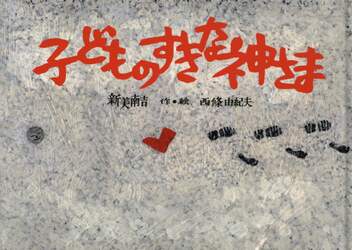 子どものすきな神さま
新美南吉 作・絵 西條由紀夫